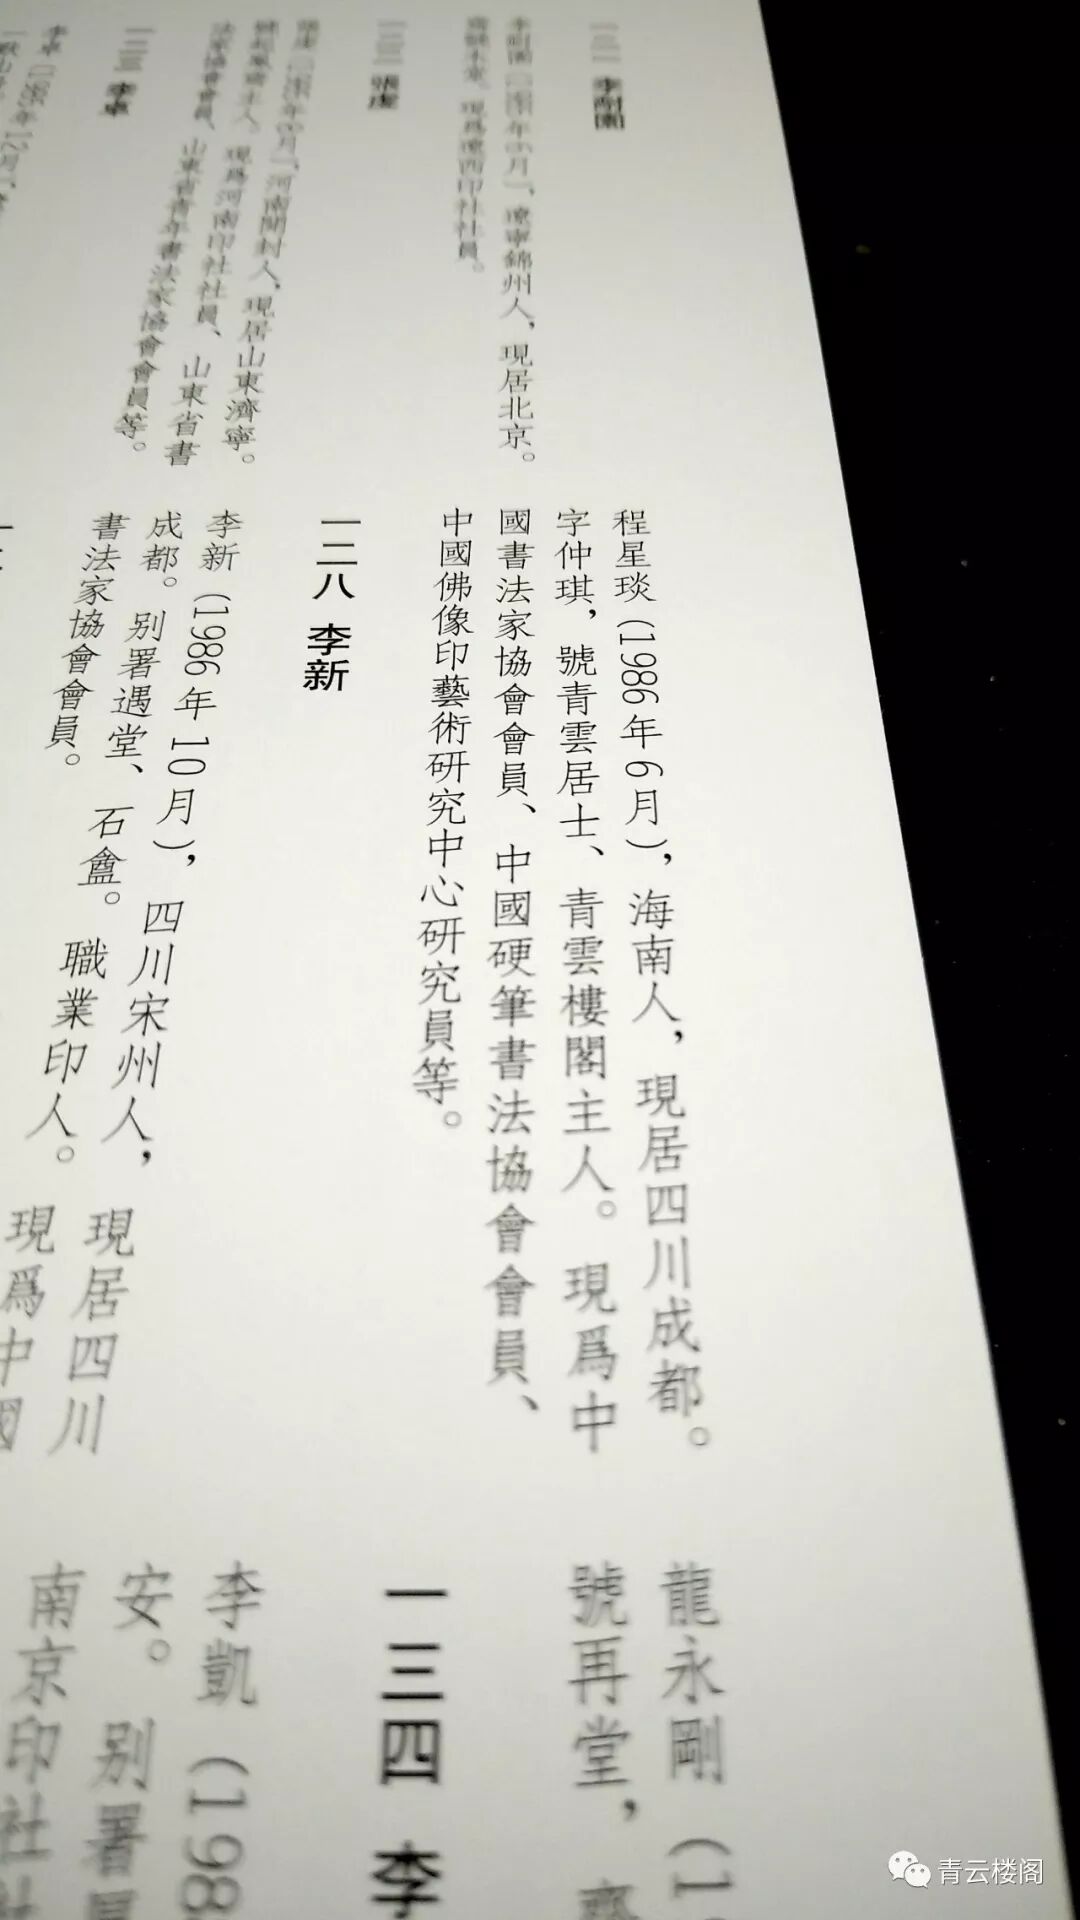 一二一 李耐園
遼寧錦州人，現居北京。
現爲遼西印社社員。
河南開封人，現居山東濟寧。
現爲河南印社社員、山東省書
法家協會會員、山東省青年書法家協會會員等。
程星琰(1986年6月)，海南人，現居四川成都。
字仲琪，號青雲居士、青雲樓閣主人。現爲中
國書法家協會會員、中國硬筆書法協會會員、
中國佛像印藝術研究中心研究員等。
一二八 李新
李新(1986年10月)，四川宋州人，現居四川
成都。别署遇堂、石盦。職業印人。現爲中國
書法家協會會員。
龍永剛(1
號再堂，齊
一三四 李
李凱(198
安。别署
南京印社社
青云楼阁